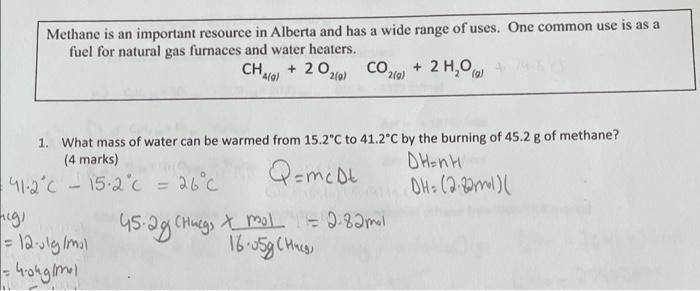 Methane is an important resource in Alberta and has a wide range of uses. One common use is as a
fuel for natural gas furnaces and water heaters.
CH4(g) + 2 O2(g) CO2(g) + 2 H2O(g)
1. What mass of water can be warmed from 15.2°C to 41.2°C by the burning of 45.2 g of methane?
(4 marks)
41.2°C - 15.2°C = 26°C
Q=mcΔt
ΔH=nH
ΔH=(2.82mol)(
45.2g CH4(g) x mol = 2.82mol
16.05g CH4(g)
= 12.01g/mol
= 4.04g/mol